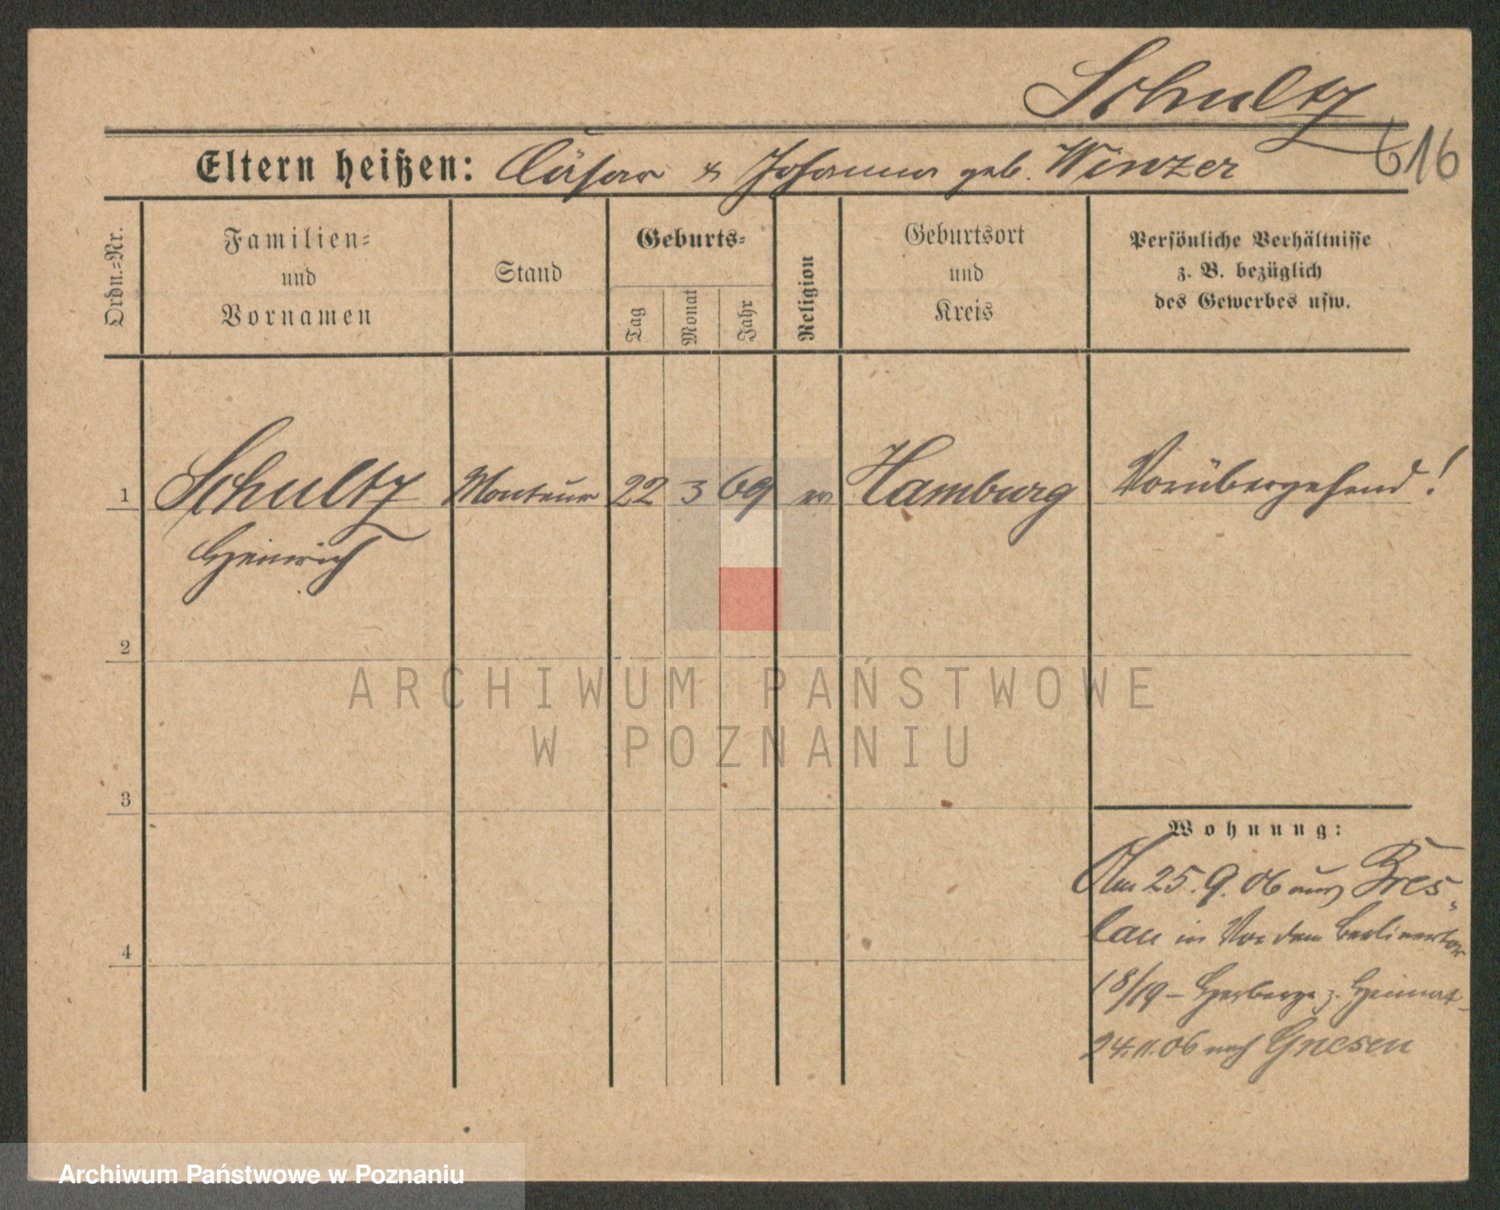 Schultz
616
Eltern heißen: Cäsar & Johanna geb. Winzer
Ordn.-Nr.
Familien- und Vornamen
Stand
Geburts-
Tag
Monat
Jahr
Religion
Geburtsort und Kreis
Persönliche Verhältnisse
z. B. bezüglich
des Gewerbes usw.
1 Schultz Monteur 22 3 69 Hamburg Vorübergehend!
Heinrich
2
3
4
Wohnung:
Am 25.9.06 aus Bres-
lau in Vor dem Berlinertor
18/19 - Herberge z. Heimat -
24.11.06 nach Gnesen
ARCHIWUM PAŃSTWOWE
W POZNANIU
Archiwum Państwowe w Poznaniu